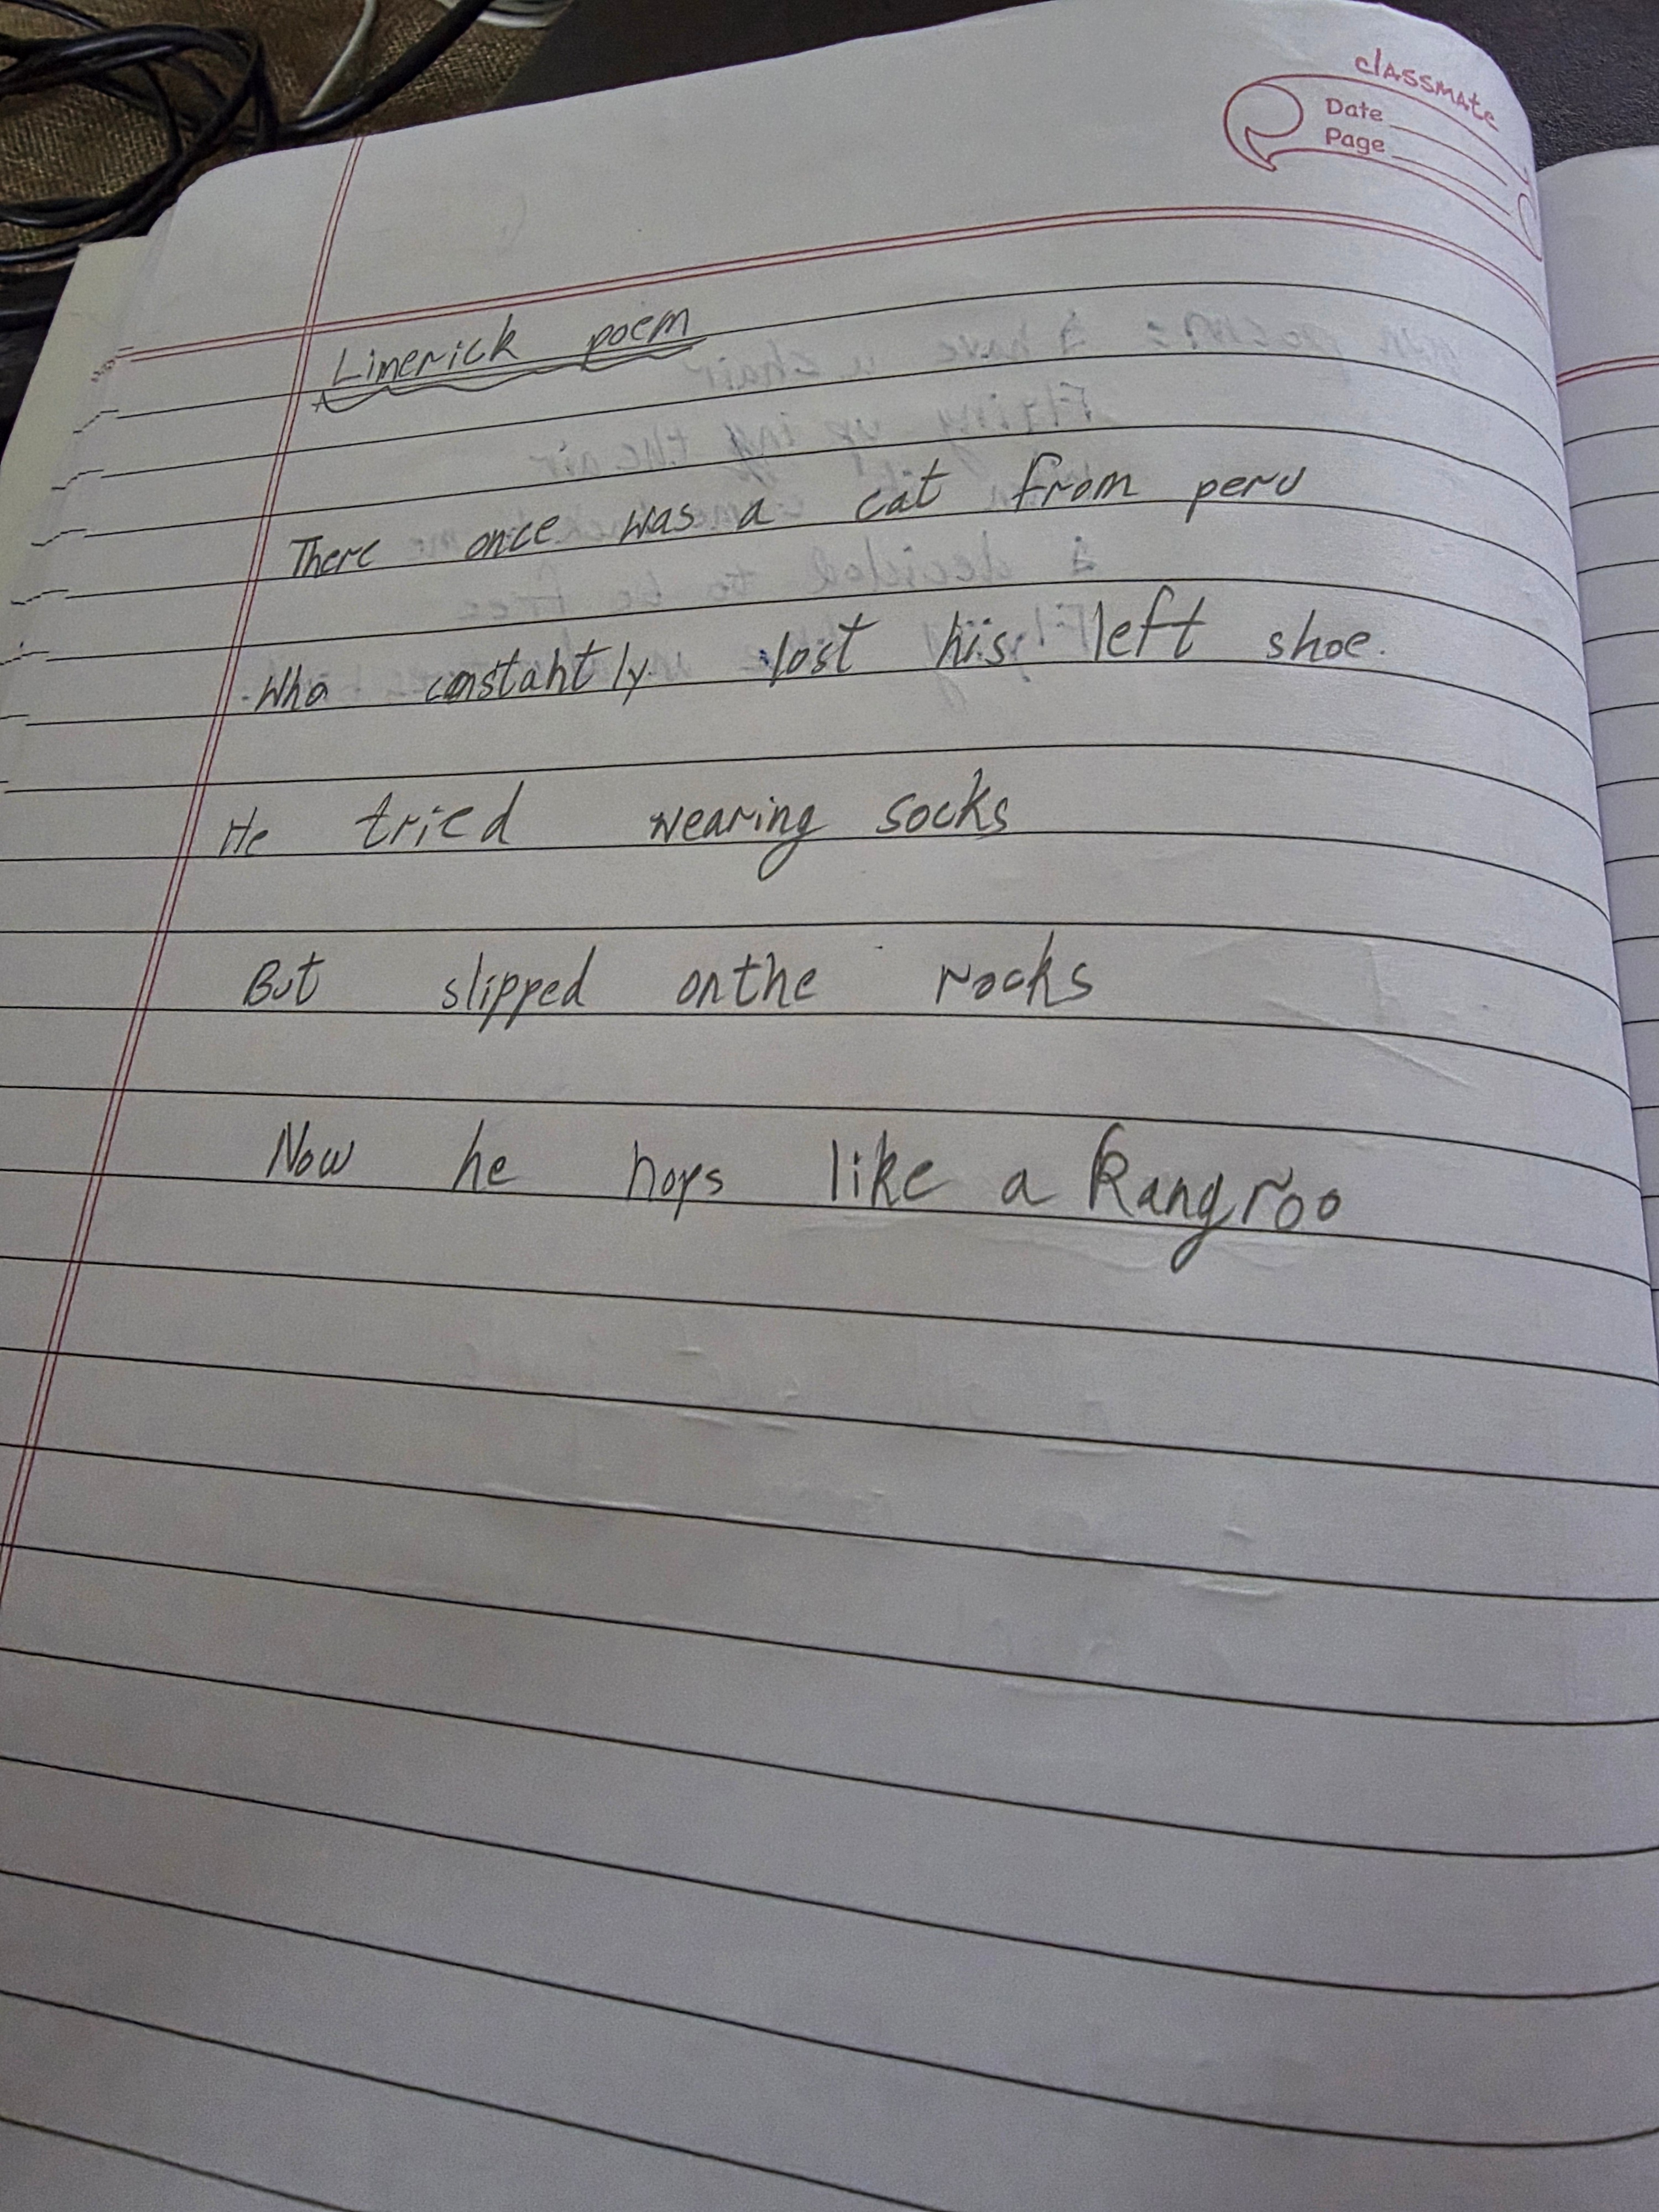 classmate
Date
Page
Limerick poem
There once was a cat from peru
Who constantly lost his left shoe.
He tried wearing socks
But slipped onthe rocks
Now he hops like a Kangroo